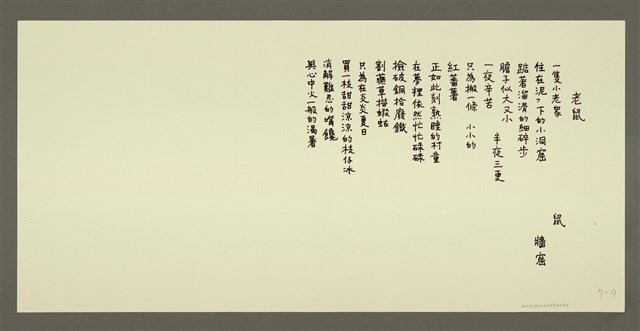 老鼠
一隻小老 鼠
住在泥下的小洞窟 牆窟
踮著溜滑的細碎步
膽子似大又小 半夜三更
一夜辛苦
只為搬一條 小小的
紅蕃薯
正如此刻熟睡的村童
在夢裡依然忙忙碌碌
撿破銅拾廢鐵
割藥草撈蝦蛄
只為在炎炎夏日
買一枝甜甜涼涼的枝仔冰
消解難忍的嘴饞
與心中火一般的渴暑